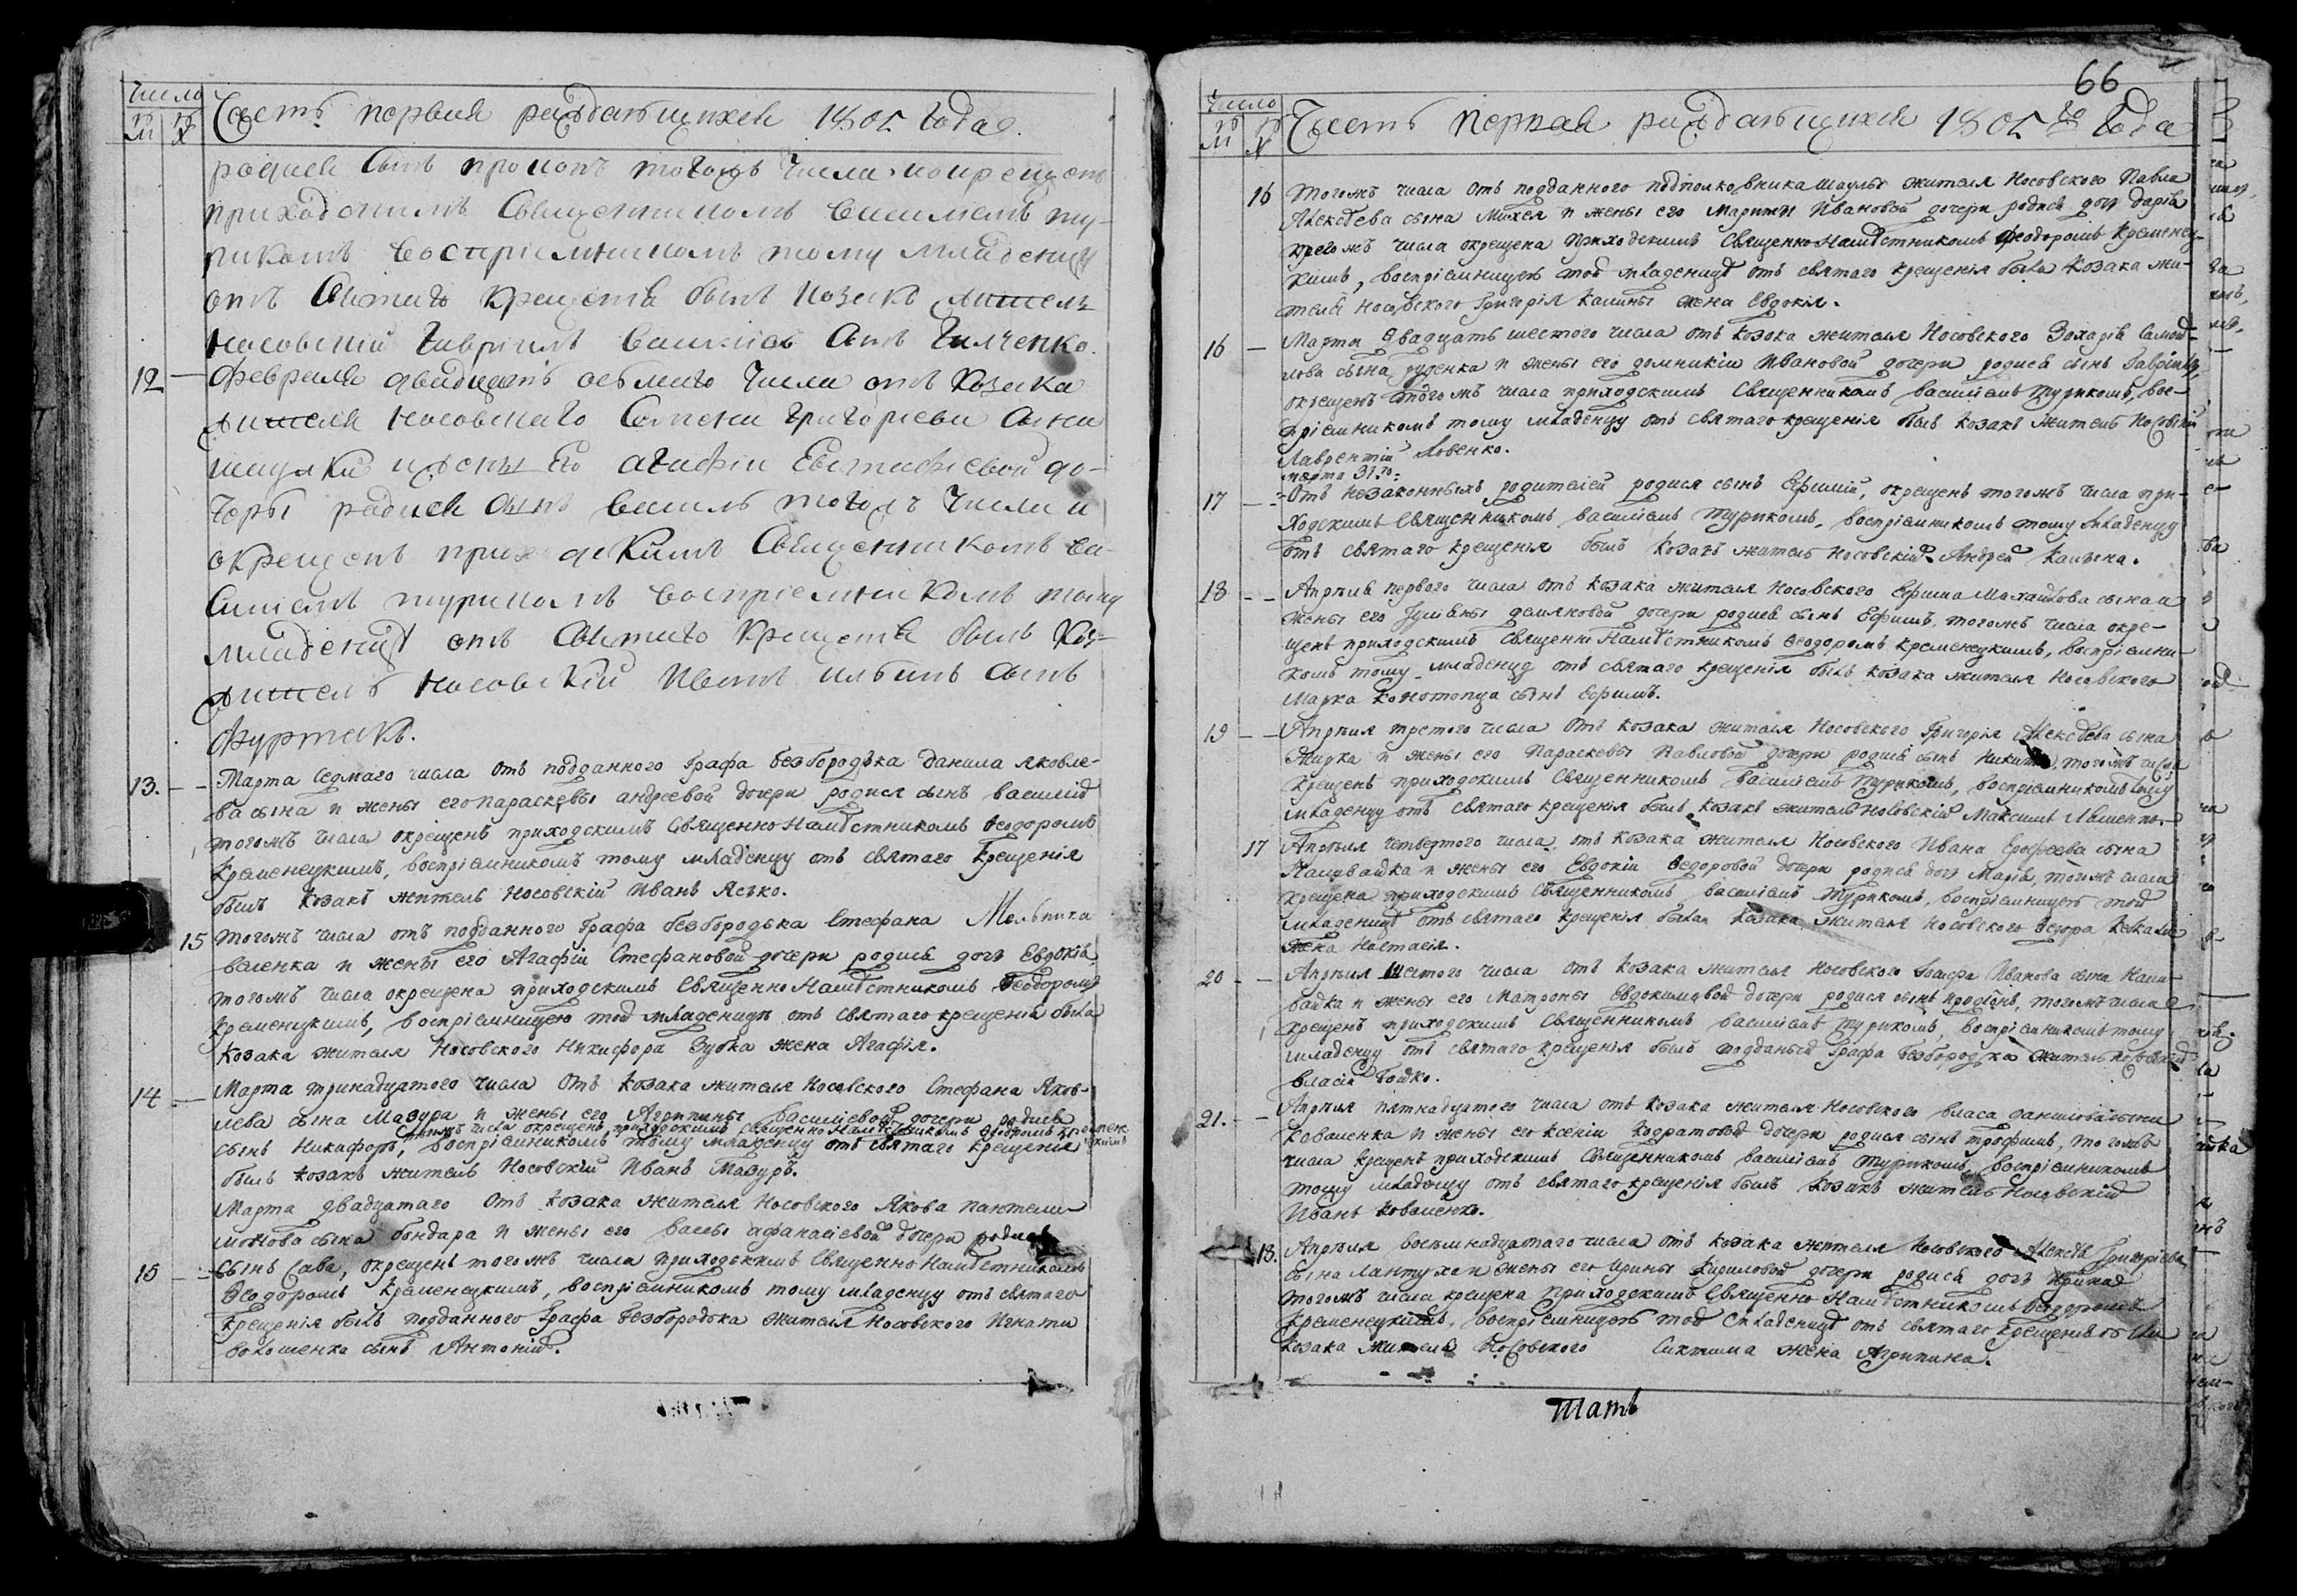 Число
М Ж
Часть первая раждающихся 1805 Года
родися сынъ тогожъ числа и окрещенъ
приходскимъ Священникомъ Василіемъ ту-
рикомъ воспріемникомъ тому младенцу
отъ Святаго Крещенія былъ козакъ житель
Носовскій Гавріилъ сынъ
12 Февраля двадцать осьмаго числа отъ козака
жителя Носовскаго Семена Григоріева сына
и жены его Агафіи Евстафіевой до-
черы родися сынъ Василь тогожъ числа и
окрещенъ приходскимъ Священникомъ Ва-
силіемъ турикомъ воспріемникомъ тому
младенцу отъ Святаго Крещенія былъ Коз-
житель Носовскій Иванъ сынъ
Фуртакъ.
13. Марта седмаго числа отъ подданного Графа безбородька данила яковле-
ва сына и жены его параскевы андреевой дочери родися сынъ василій
тогожъ числа окрещенъ приходскимъ Священно Намѣстникомъ Ѳеодоромъ
Кременецкимъ, воспріемникомъ тому младенцу отъ святаго крещенія
былъ козакъ житель Носовскій Иванъ Ясько.
15 тогожъ числа отъ подданного Графа безбородька Стефана
и жены его Агафіи Стефановой дочери родись дочь Евдокія
тогожъ числа окрещена приходскимъ Священно Намѣстникомъ Ѳеодоромъ
кременецкимъ, воспріемницею той младеницѣ отъ святаго крещенія была
козака жителя Носовского Никифора Зубка жена Агафія.
14 Марта тринадцатого числа отъ козака жителя Носовского Стефана Яков-
лева сына Мазура и жены его Агрипины Василіевой дочери родися
тогожъ числа окрещенъ приходскимъ Священно Намѣстникомъ Ѳеодоромъ кременец-
кимъ
сынъ Никифоръ, воспріемникомъ тому младенцу отъ святаго крещенія
былъ козакъ житель Носовскій Иванъ Мазуръ.
Марта двадцатаго отъ козака жителя Носовского Якова пантели-
монова сына бондара и жены его вассы афанасіевой дочери родися
15 сынъ Сава, окрещенъ тогожъ числа приходскимъ Священно Намѣстникомъ
Ѳеодоромъ Кременецкимъ, воспріемникомъ тому младенцу отъ святаго
крещенія былъ подданного Графа Безбородька жителя Носовского Игната
волошенка сынъ Антоній.
66
Число
М Ж
Часть первая раждающихся 1805го Года
16 тогожъ числа отъ подданного подполковника жителя Носовского Павла
Алексѣева сына Михея и жены его Марины Ивановой дочери родись дочь дарія
числа окрещена приходскимъ Священно Намѣстникомъ Феодоромъ Кременец-
кимъ, воспріемницею той младеницѣ отъ святаго крещенія была козака жи-
теля Носовского Григорія Калины жена Евдокія.
16 Марта двадцать шестого числа отъ козака жителя Носовского Захарія Самой-
лова сына руденка и жены его домникіи Ивановой дочери родися сынъ Гавріилъ,
окрещенъ тогожъ числа приходскимъ Священникомъ василіемъ Турикомъ, вос-
пріемникомъ тому младенцу отъ святаго крещенія былъ козакъ житель Носовскій
Лаврентій Ловенко.
марта 31го:
17 Отъ незаконныхъ родителей родися сынъ Ефимій, окрещенъ тогожъ числа при-
ходскимъ Священникомъ василіемъ Турикомъ, воспріемникомъ тому младенцу
отъ святаго крещенія былъ козакъ житель Носовскій Андрей Калына.
18 Апрѣля первого числа отъ козака жителя Носовского Ефима Михайлова сына и
жены его Іуліаны даміяновой дочери родися сынъ Ефимъ, тогожъ числа окре-
щенъ приходскимъ Священно Намѣстникомъ Ѳеодоромъ кременецкимъ, воспріемни-
комъ тому младенцу отъ святаго крещенія былъ козака жителя Носовского
Марка Конотопца сынъ Ефимъ.
19 Апрѣля третого числа отъ козака жителя Носовского Григорія Алексѣева сына
и жены его Параскевы Павловой дочери родися сынъ Никита, тогожъ числа
крещенъ приходскимъ Священникомъ василіемъ Турикомъ, воспріемникомъ тому
младенцу отъ святаго крещенія былъ козакъ житель Носовскій Максимъ
17 Апрѣля четвертого числа, отъ козака жителя Носовского Ивана Ерофеева сына
Наливайка и жены его Евдокіи Ѳедоровой дочери родися дочь Марія, тогожъ числа
крещена приходскимъ Священникомъ василіемъ Турикомъ, воспріемницею той
младеницѣ отъ святаго крещенія была козака жителя Носовского Ѳедора
жена Настасія.
20 Апрѣля шестого числа отъ козака жителя Носовского Іосифа Иванова сына Нали-
вайка и жены его Матроны Евдокимовой дочери родися сынъ тогожъ числа
крещенъ приходскимъ Священникомъ василіемъ турикомъ, воспріемникомъ тому
младенцу отъ святаго крещенія былъ подданый Графа Безбородька житель носовскій
власій Бошко.
21. Апрѣля пятнадцатого числа отъ козака жителя Носовского власа даниловa сына
Коваленка и жены его Ксеніи Кодратовой дочери родися сынъ трофимъ, тогожъ
числа крещенъ приходскимъ Священникомъ василіемъ турикомъ, воспріемникомъ
тому младенцу отъ святаго крещенія былъ козакъ житель Носовскій
Иванъ Коваленко.
18. Апрѣля восемнадцатаго числа отъ козака жителя Носовского Алексѣя Григоріева
сына Лантуха и жены его Ирины Кириловой дочери родися дочь
тогожъ числа крещена приходскимъ Священно Намѣстникомъ Ѳеодоромъ
Кременецкимъ, воспріемницею той младеницѣ отъ святаго крещенія была
козака жителя Носовского жена Агрипина.